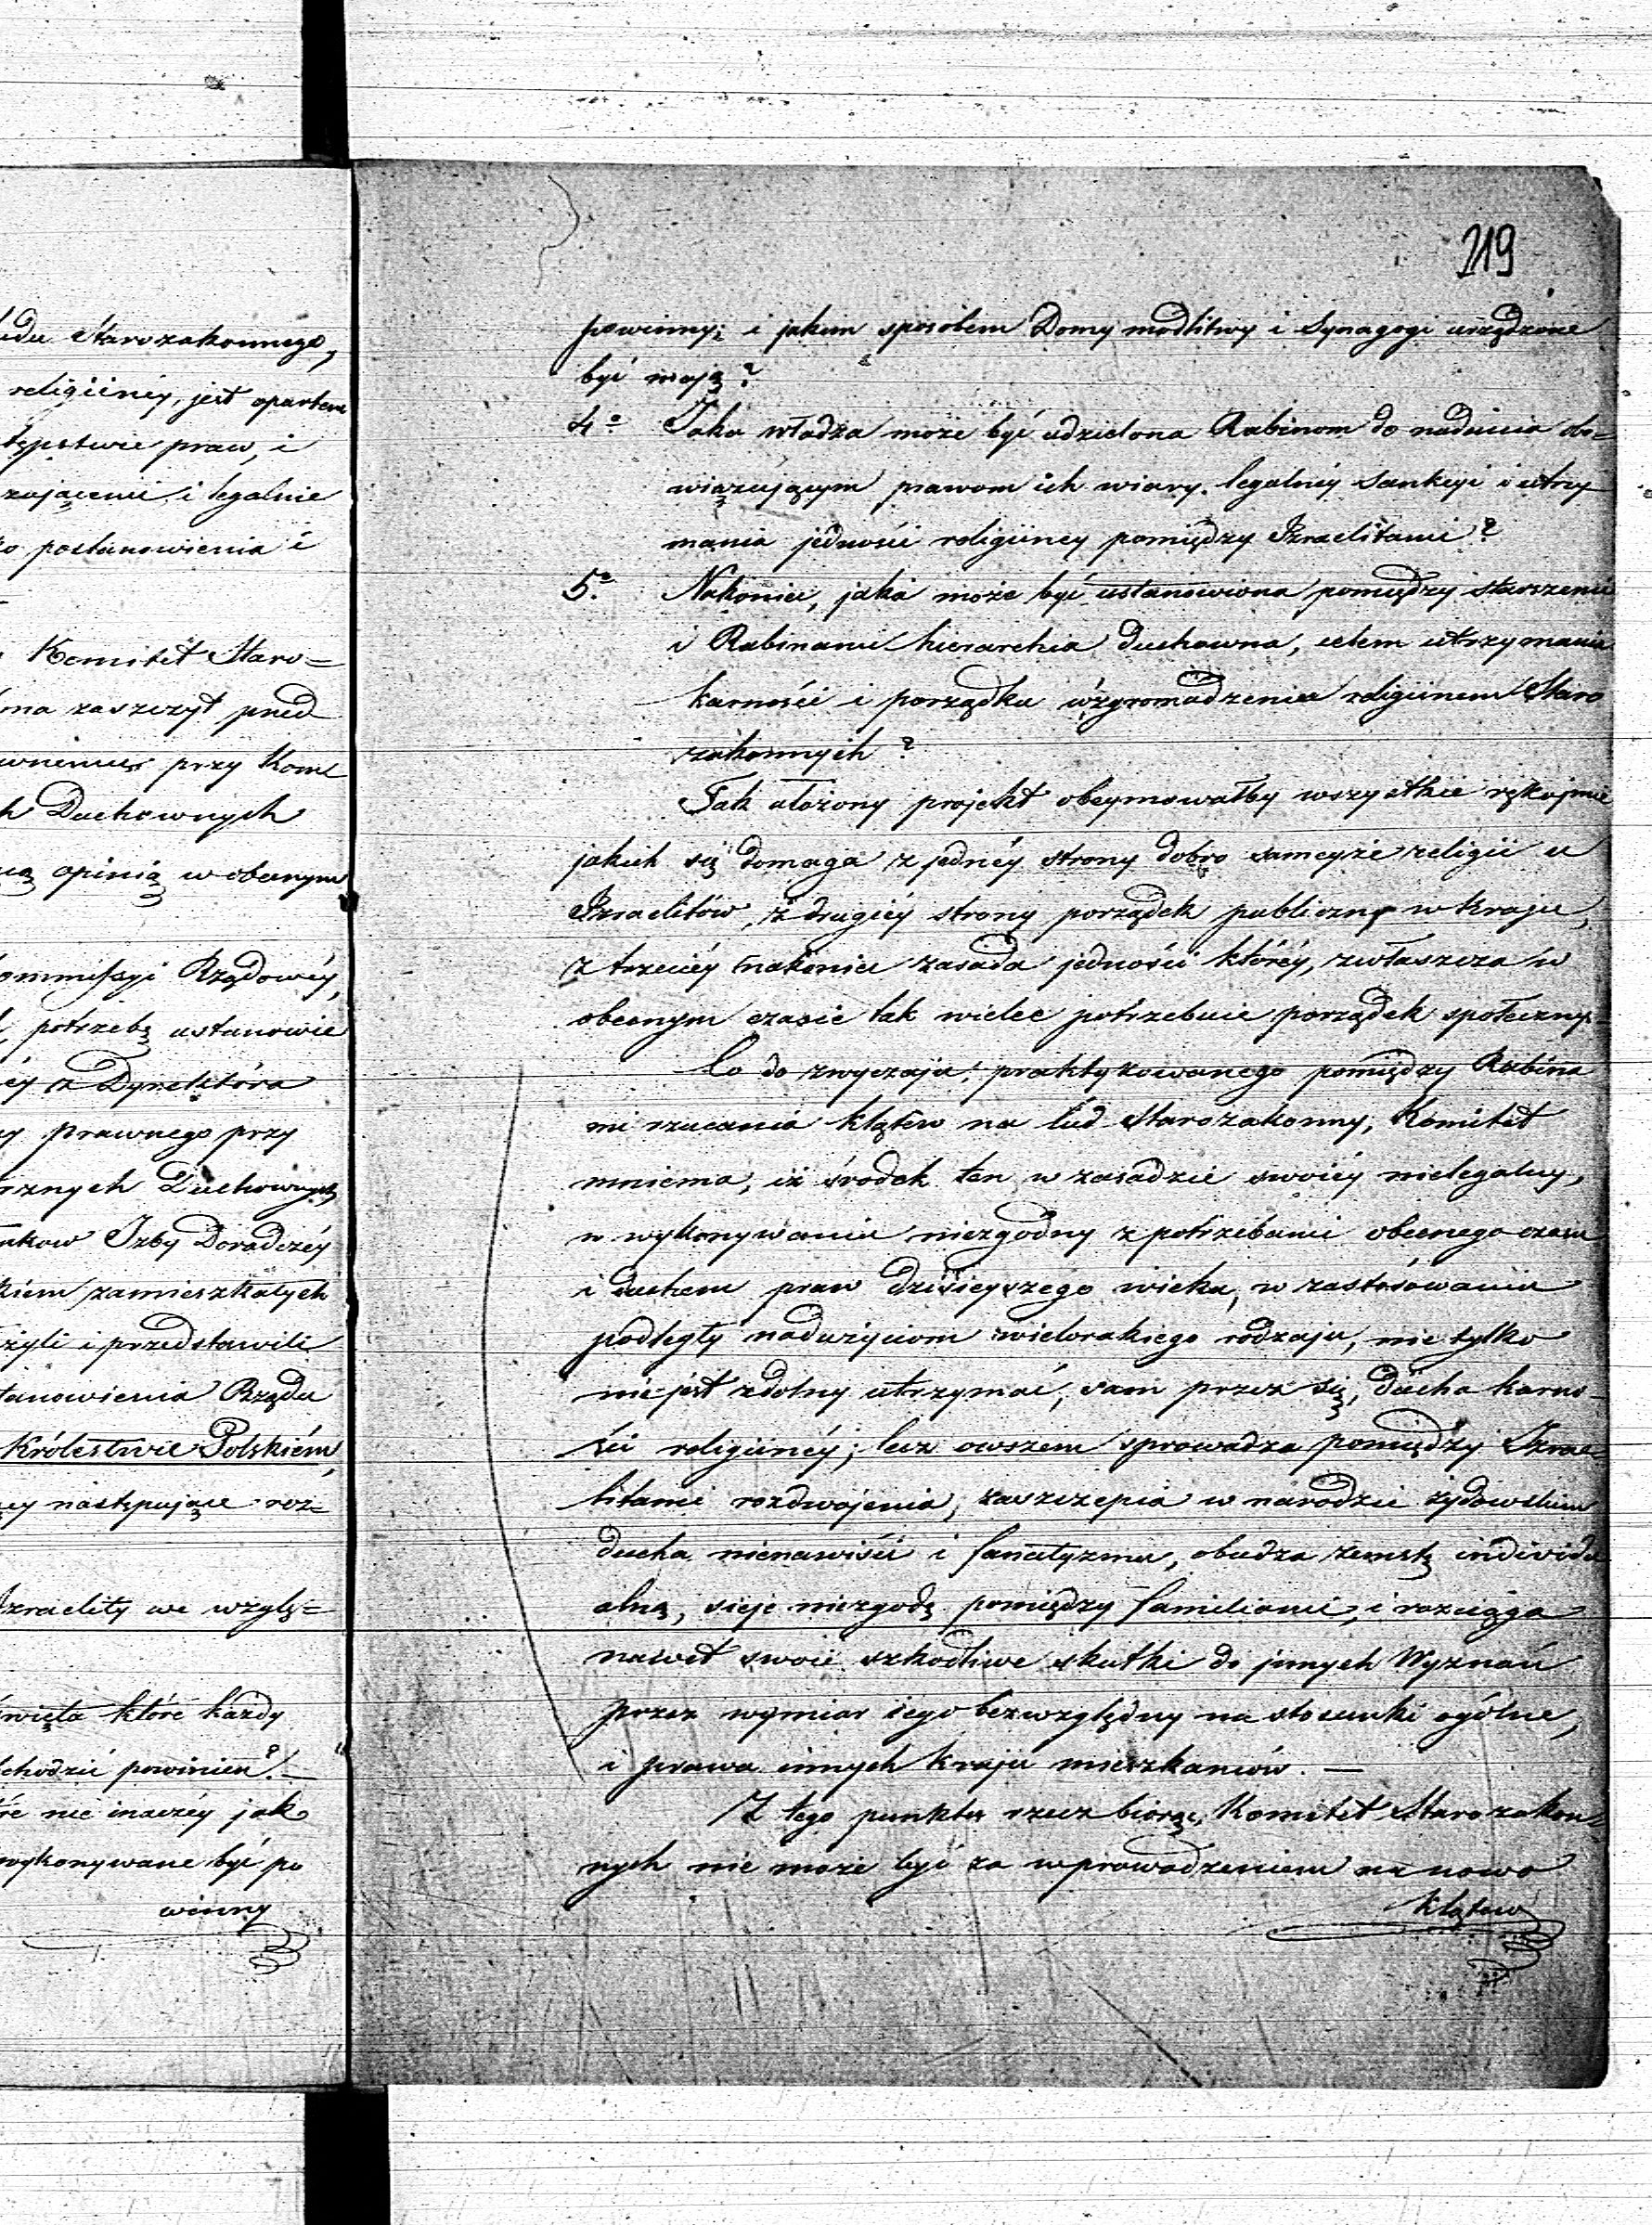 udu Starozakonnego,
religiinéy, jest opartem
tępstwie praw, i
zującemi i legalnie
o postanowienia i
Komitét Staro=
ma zaszczyt przed
wnemu przy Kom
h Duchownych
ą opinią w obecnym
ommissyi Rządowéy,
potrzebę ustanowie
éy z Dyrektóra
y prawnego przy
rznych Duchownych
nkow Izby Doradczéy
kiem zamieszkałych
żyli i przedstawili
tanowienia Rządu
Królestwie Polskiém,
ey następujące roz=
Izraelity we wzglę=
święta które każdy
chodzić powinien? —
ré nie inaczéy jak
wykonywane być po
winny
219
powinny; i jakim sposobem Domy modlitwy i Synagogi urządzone
być mają?
4o Jaka władza może być udzielona Rabinom do nadania obo=
wiązującym prawom ich wiary legalnéy Sankcyi i utrzy
mania jedności religiiney pomiędzy Izraelitami?
5o Nakoniec, jaka może być ustanowiona pomiędzy starszemi
i Rabinami hierarchia duchowna, celem utrzymania
karności i porządku w zgromadzeniu religiinem Staro
zakonnych?
Tak ułożony projekt obeymowałby wszystkie rękojmie
jakich się domaga z jednéy strony dobro sameyże religii u
Izraelitów, z drugiéy strony porządek publiczny w kraju,
z trzeciéy nakoniec zasada jedności któréy, zwłaszcza w
obecnym czasie tak wiele potrzebuie porządek społeczny.
Co do zwyczaju, praktykowanego pomiędzy Rabina
mi rzucania klątew na lud Starozakonny, Komitet
mniema, iż środek ten w zasadzie swoiéy nielegalny,
w wykonywaniu niezgodny z potrzebami obecnego czasu
i duchem praw dzisieyszego wieku, w zastósowaniu
podległy nadużyciom wielorakiego rodzaju, nie tylko
nie jest zdolny utrzymać, sam przez się, ducha karno=
ści religiinéy, lecz owszem sprowadza pomiędzy Izrae=
litami rozdwojenia, zaszczepia w narodzie żydowskim
ducha nienawiści i fanatyzmu, obudza zemstę individu
alną, sieje niezgodę pomiędzy familiami, i rozciąga
nawet swoie szkodliwe skutki do innych Wyznań
przez wymiar iego bezwzględny na stosunki ogólne,
i prawa innych kraju mieszkańców. —
Z tego punktu rzecz biorąc, Komitet Starozakon=
nych nie może być za wprowadzeniem na nowo
klątew